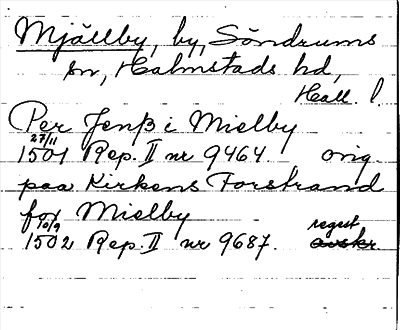 Mjällby, by, Söndrums
sn, Halmstads hd,
Hall. l.
Per Jenß i Mielby
27/11
1501 Rep. II nr 9464. orig.
paa Kirkens Forstrand
for Mielby
10/9 regest
1502 Rep. II nr 9687. avskr